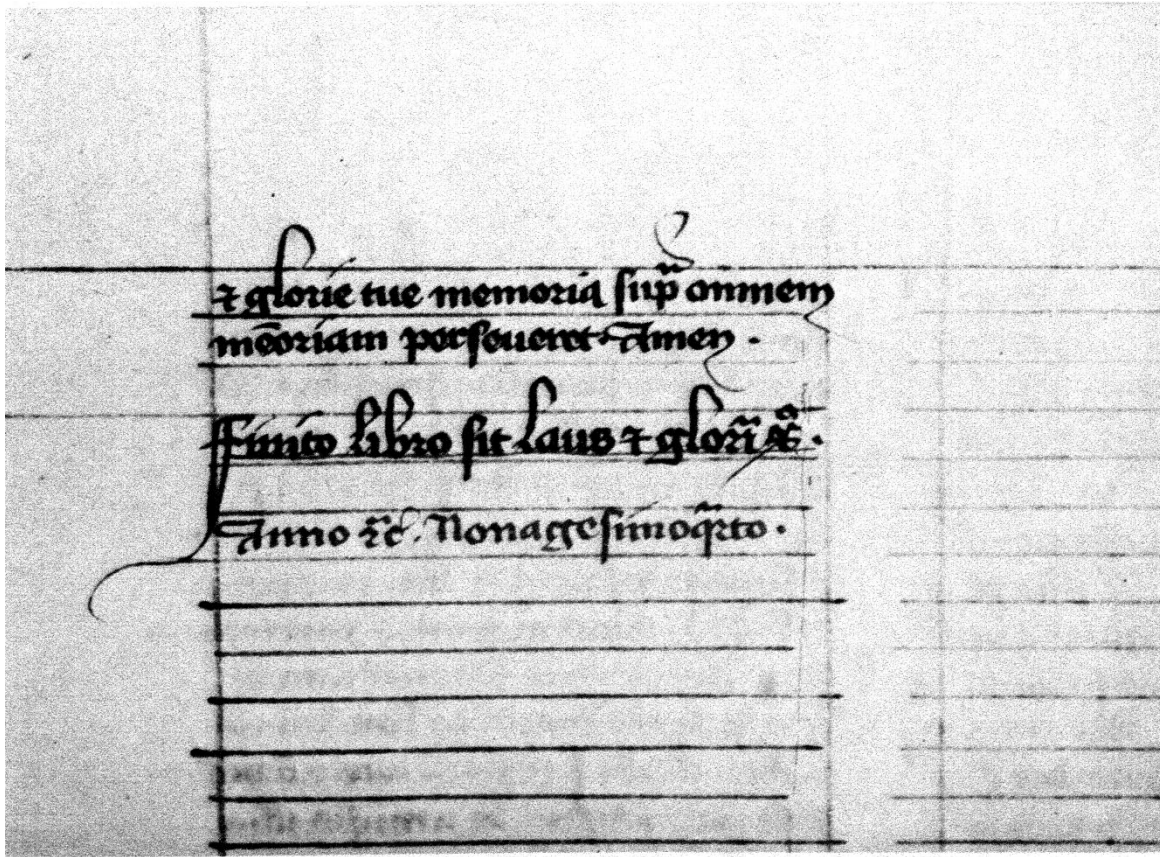 ⁊ glorie tue memoria sup̄ omnem
mēoriam perseueret · Amen ·
Ffinito libro sit laus ⁊ glori̅a
Anno ⁊c̄ . Nonagesimoqͣrto ·